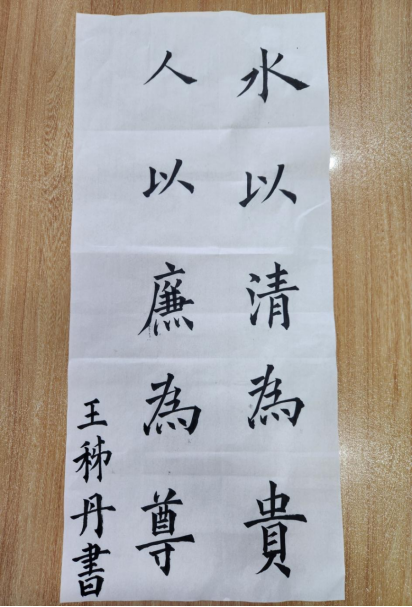 水以清為貴
人以廉為尊
王秭丹書